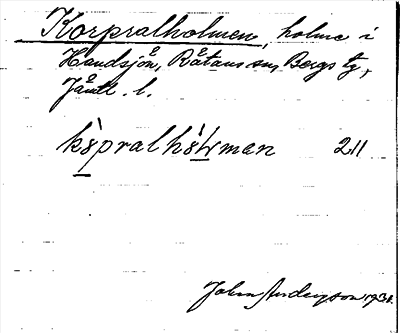 Korpralholmen, holme i
Handsjön, Rätans sn, Bergs tg,
Jämtl. l.
kǫ̀pralhǫ̀lman 211
John Anderson 193